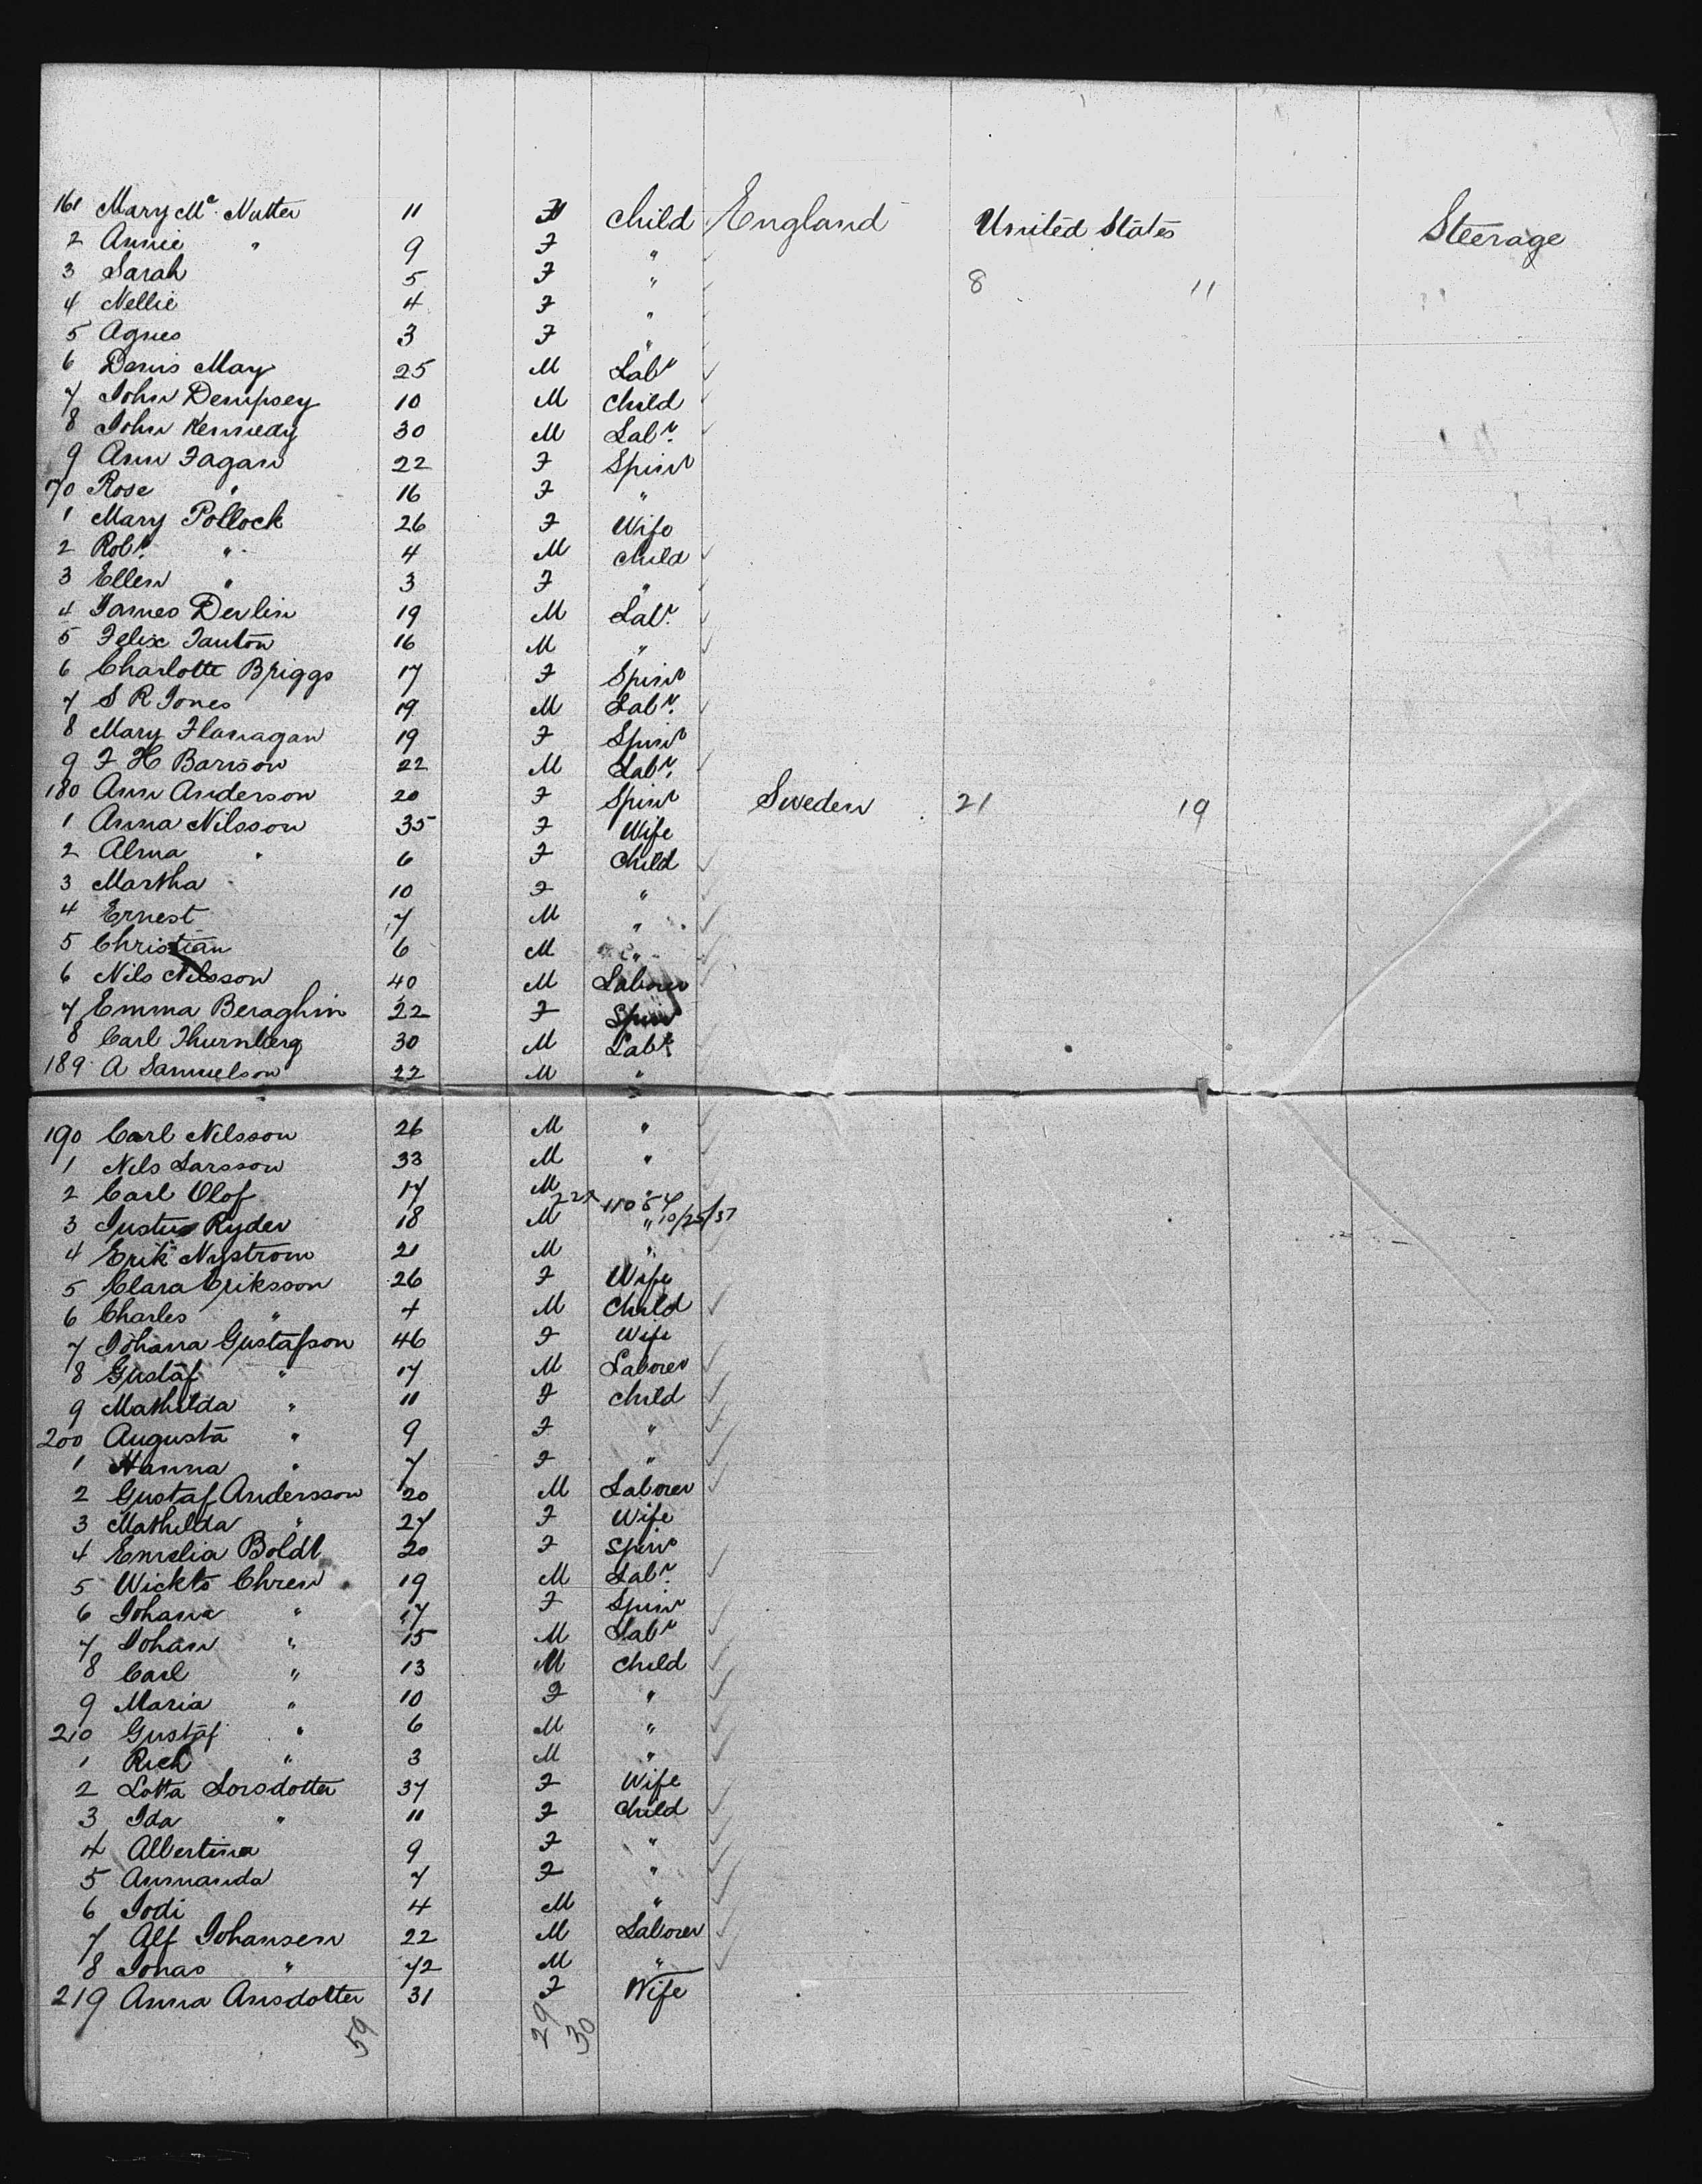 161 Mary Mc. Nutter 11 F Child England United States Steerage
2 Annie " 9 F "
3 Sarah 5 F " 8 11
4 Nellie 4 F "
5 Agnes 3 F "
6 Denis May 25 M Labr
7 John Dempsey 10 M Child
8 John Kennedy 30 M Labr.
9 Ann Fagan 22 F Spinr
170 Rose " 16 F "
1 Mary Pollock 26 F Wife
2 Robt. " 4 M Child
3 Ellen " 3 F "
4 James Devlin 19 M Labr.
5 Felix Tanton 16 M "
6 Charlotte Briggs 17 F Spinr
7 S R Jones 19 M Labr.
8 Mary Flanagan 19 F Spinr
9 F H Barrson 22 M Labr.
180 Ann Anderson 20 F Spinr Sweden 21 19
1 Anna Nilsson 35 F Wife
2 Alma " 6 F Child
3 Martha 10 F "
4 Ernest 7 M "
5 Christian 6 M "
6 Nils Nilsson 40 M Laborer
7 Emma Beraghin 22 F Spinr
8 Carl Thurnberg 30 M Labr
189 A Samuelson 22 M "
190 Carl Nilsson 26 M "
1 Nils Larsson 33 M "
2 Carl Olof 17 M "
3 Justus Ryder 18 M " 10/25/37
4 Erik Nystrom 21 M "
5 Clara Eriksson 26 F Wife
6 Charles " 4 M Child
7 Johana Gustafson 46 F Wife
8 Gustaf " 17 M Laborer
9 Mathilda " 11 F Child
200 Augusta " 9 F "
1 Hanna " 7 F "
2 Gustaf Andersson 20 M Laborer
3 Mathilda " 27 F Wife
4 Emelia Boldt 20 F Spinr
5 Wickts Chren 19 M Labr.
6 Johana " 17 F Spinr
7 Johan " 15 M Labr
8 Carl " 13 M Child
9 Maria " 10 F "
210 Gustaf " 6 M "
1 Rich " 3 M "
2 Lotta Lorsdotter 37 F Wife
3 Ida " 11 F Child
4 Albertina 9 F "
5 Ammanda 7 F "
6 Jodi 4 M "
7 Alf Johansen 22 M Laborer
8 Jonas " 72 M "
219 Anna Ansdotter 31 F Wife
59 29 30